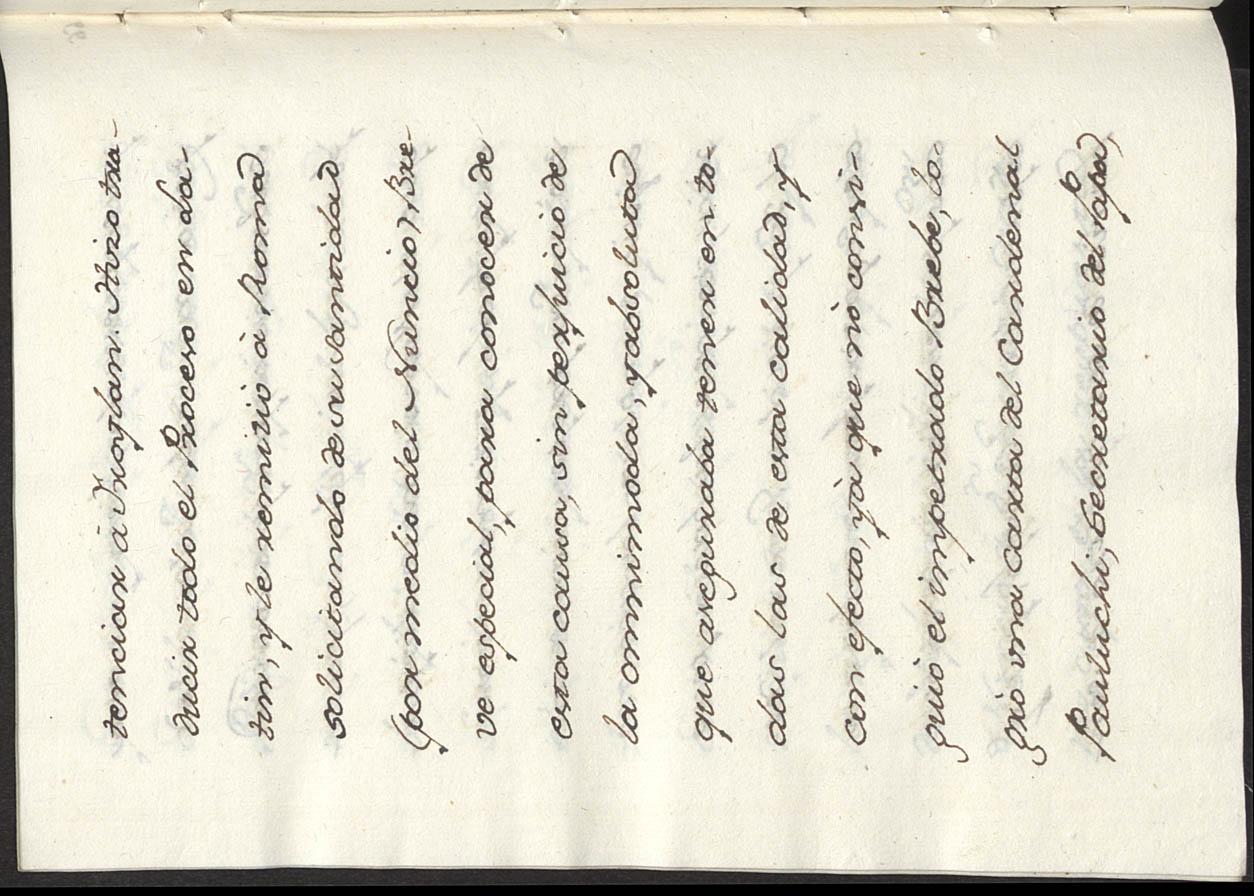 tenciar à Froylan. Hizo tra-
ducir todo el Proceso en La-
tin, y le remitiò à Roma
solicitando de su Santidad
(por medio del Nuncio) Bre-
ve especial, para conocer de
esta causa, sin perjuicio de
la omnimoda, y absoluta
que aseguraba tener en to-
das las de esta calidad, y
con efecto, yà que nò consi-
guiò el impetrado Brebe, lo-
grò una carta del Cardenal
Pauluchi, Secretario del Papa,